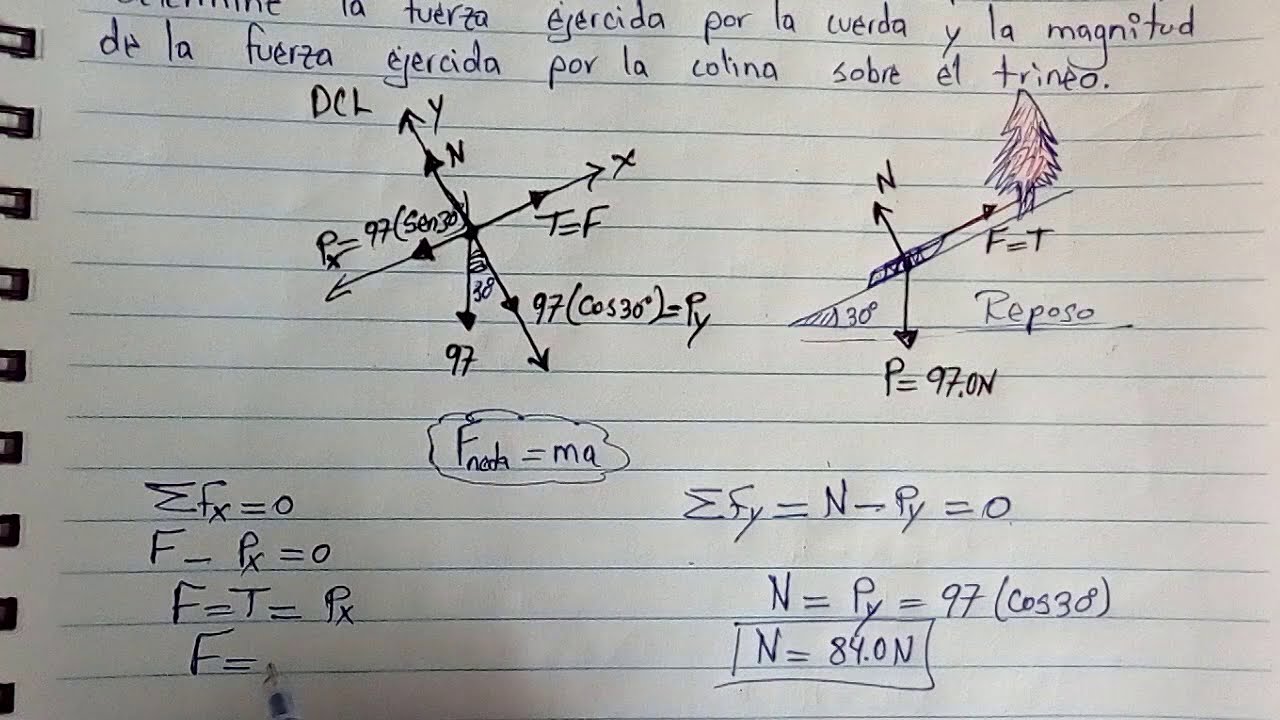 la fuerza ejercida por la cuerda y la magnitud
de la fuerza ejercida por la colina sobre el trineo.
DCL
Y
N
X
T=F
Px=97(Sen30°)
30°
97(Cos30°)=Py
97
N
F=T
30°
Reposo
P=97.0N
Fneta=ma
ΣFx=0
F-Px=0
F=T=Px
F=
ΣFy=N-Py=0
N=Py=97(Cos30°)
N=84.0N